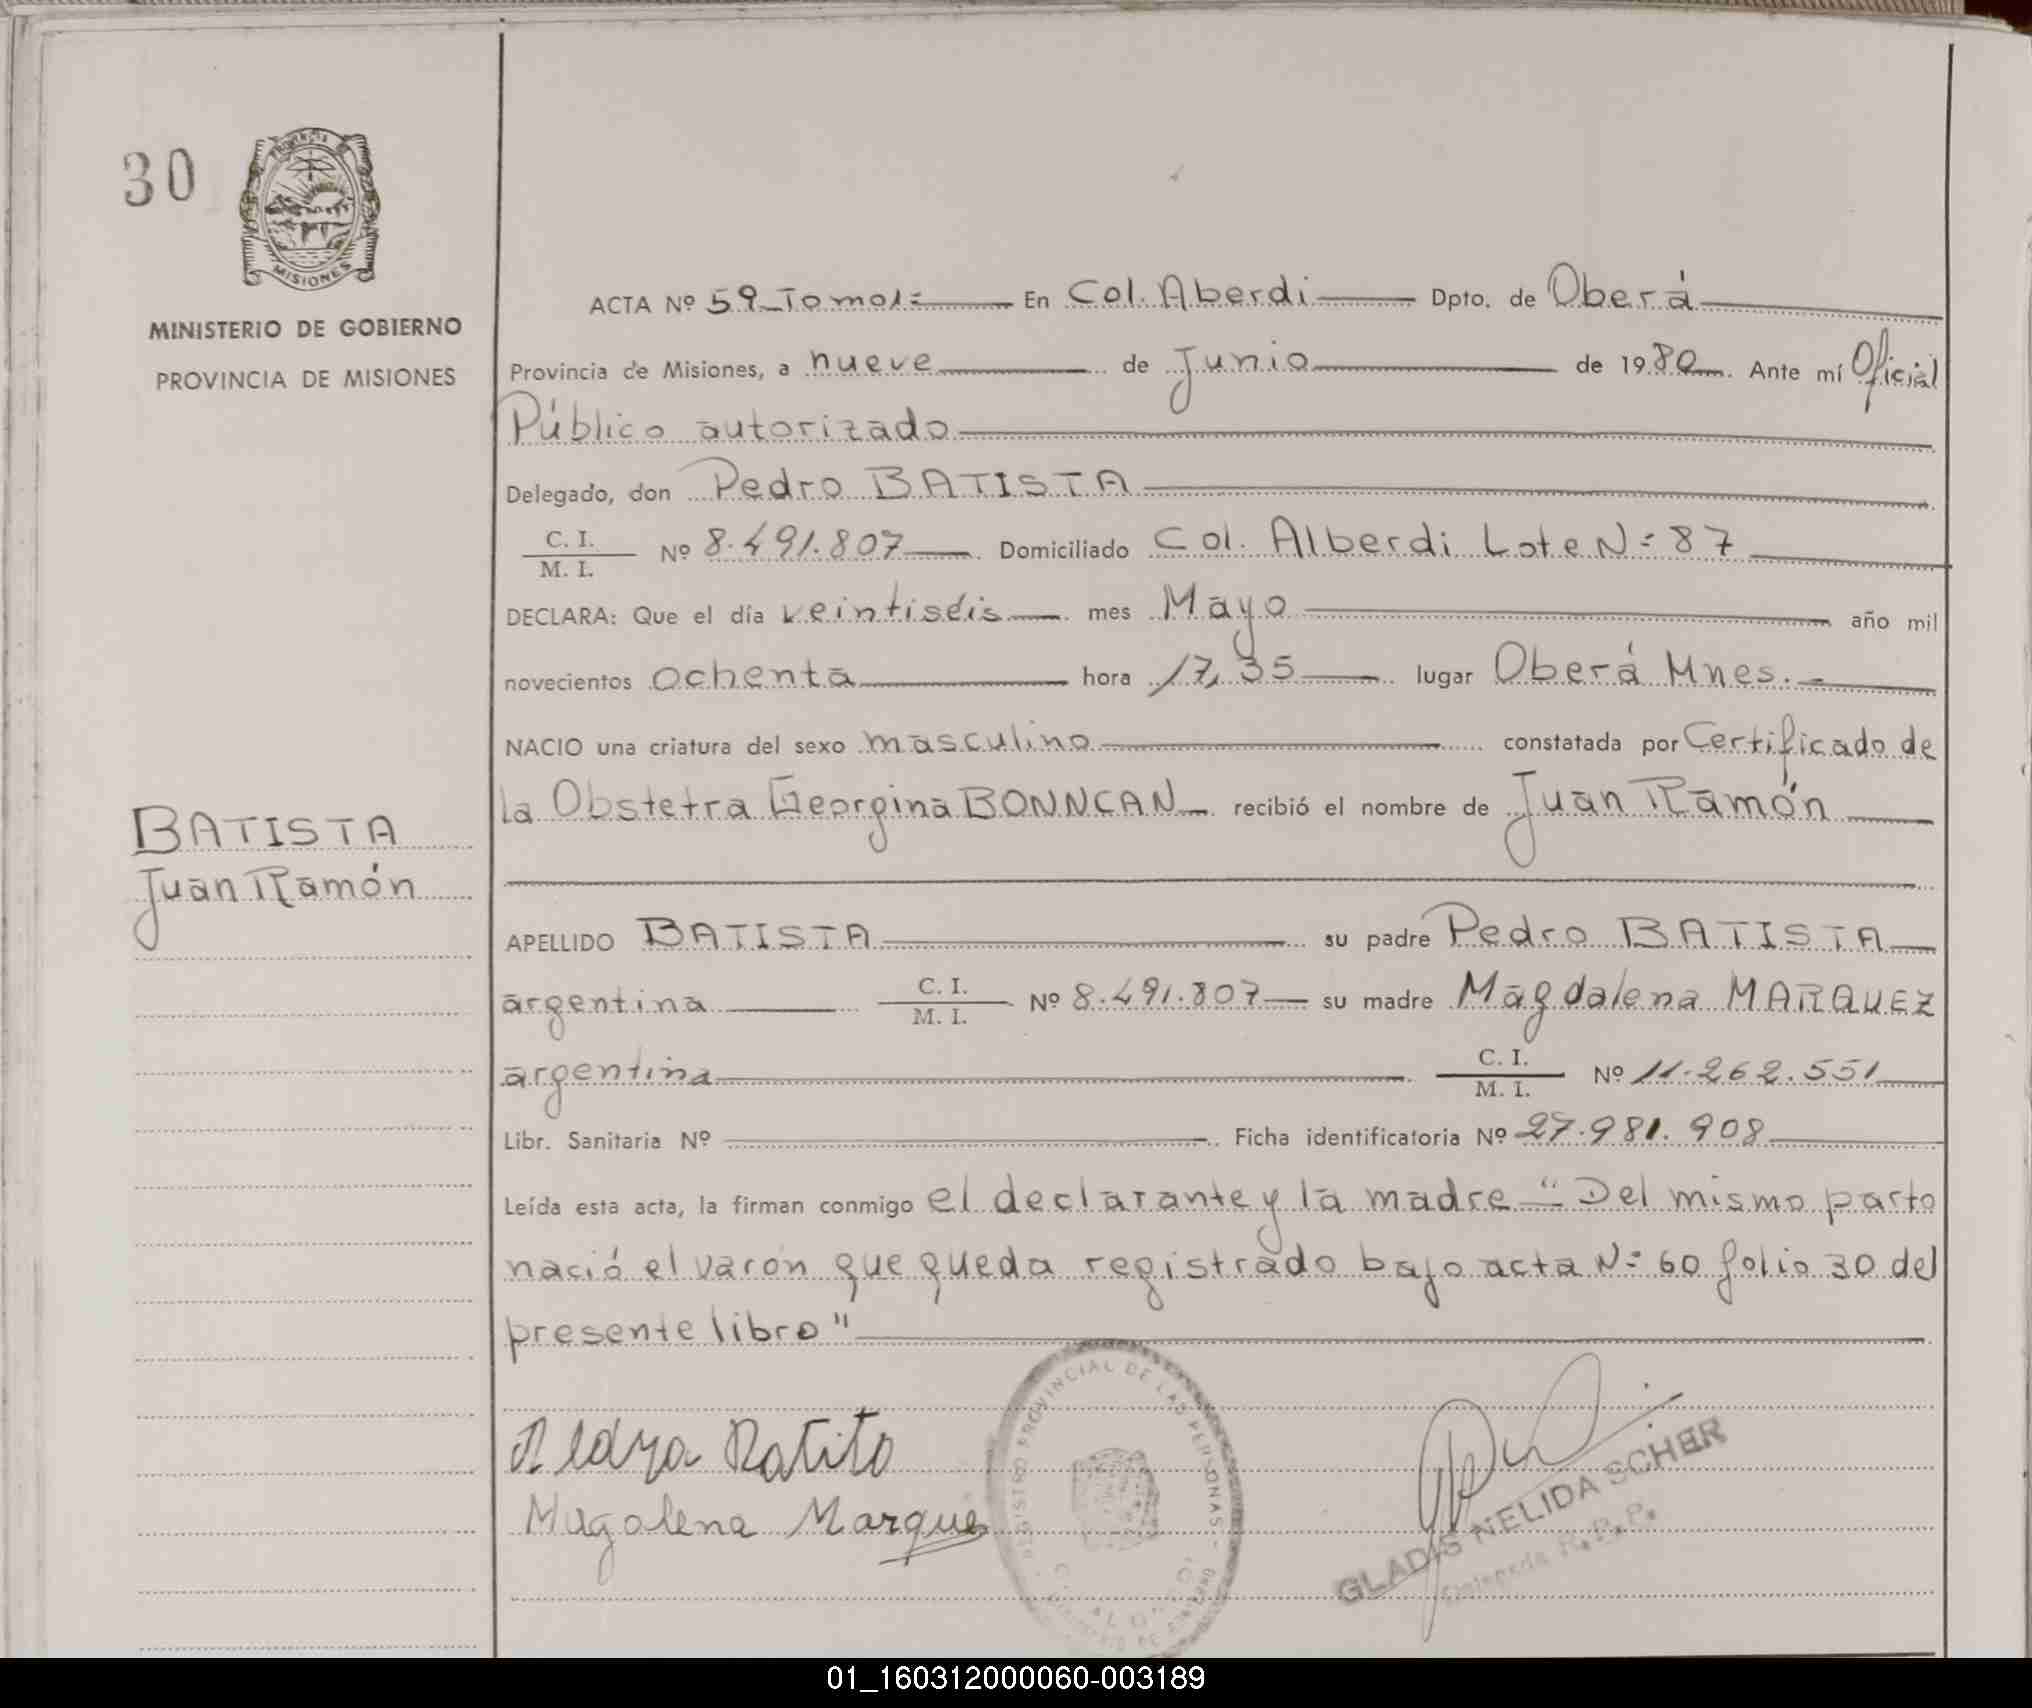 30
PROVINCIA
MISIONES
MINISTERIO DE GOBIERNO
PROVINCIA DE MISIONES
BATISTA
Juan Ramón
ACTA Nº 59 Tomo 1: En Col. Aberdi Dpto. de Oberá
Provincia de Misiones, a nueve de Junio de 1980. Ante mí Oficial
Público autorizado
Delegado, don Pedro BATISTA
C. I.
M. I. Nº 8.491.807 Domiciliado Col. Alberdi Lote N= 87
DECLARA: Que el día veintiséis mes Mayo año mil
novecientos ochenta hora 17,35 lugar Oberá Mnes.-
NACIO una criatura del sexo masculino constatada por Certificado de
la Obstetra Georgina BONNCAN recibió el nombre de Juan Ramón
APELLIDO BATISTA su padre Pedro BATISTA
argentina C. I. M. I. Nº 8.491.807 su madre Magdalena MARQUEZ
argentina C. I. M. I. Nº 11.262.551
Libr. Sanitaria Nº Ficha identificatoria Nº 27.981.908
Leída esta acta, la firman conmigo el declarante y la madre "Del mismo parto
nació el varón que queda registrado bajo acta N= 60 folio 30 del
presente libro"
REGISTRO PROVINCIAL DE LAS PERSONAS
Magdalena Marques
GLADIS NELIDA SCHER
Delegada R.P.P.
01_160312000060-003189